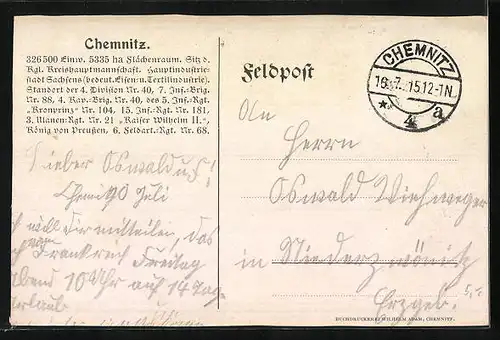 Chemnitz.
326500 Einw. 5335 ha Flächenraum. Sitz d.
Kgl. Kreishauptmannschaft. Hauptindustrie-
stadt Sachsens (bedeut. Eisen- u. Textilindustrie).
Standort der 4. Division Nr. 40, 7. Inf.-Brig.
Nr. 88, 4. Kav.-Brig. Nr. 40, des 5. Inf.-Rgt.
"Kronprinz" Nr. 104, 15. Inf.-Rgt. Nr. 181,
3. Ulanen-Rgt. Nr. 21 "Kaiser Wilhelm II.",
König von Preußen, 6. Feldart.-Rgt. Nr. 68.
Lieber Oswald
Juli
will Dir mitteilen, das
Frankreich Freitag
Abend 10 Uhr auf 14 Tag
Urlaub
Feldpost
CHEMNITZ
16.7.15.12-1N.
* 4 a
An
Herrn
Oswald Viehweger
in Niederzwönitz
Erzgeb.
BUCHDRUCKEREI WILHELM ADAM, CHEMNITZ.